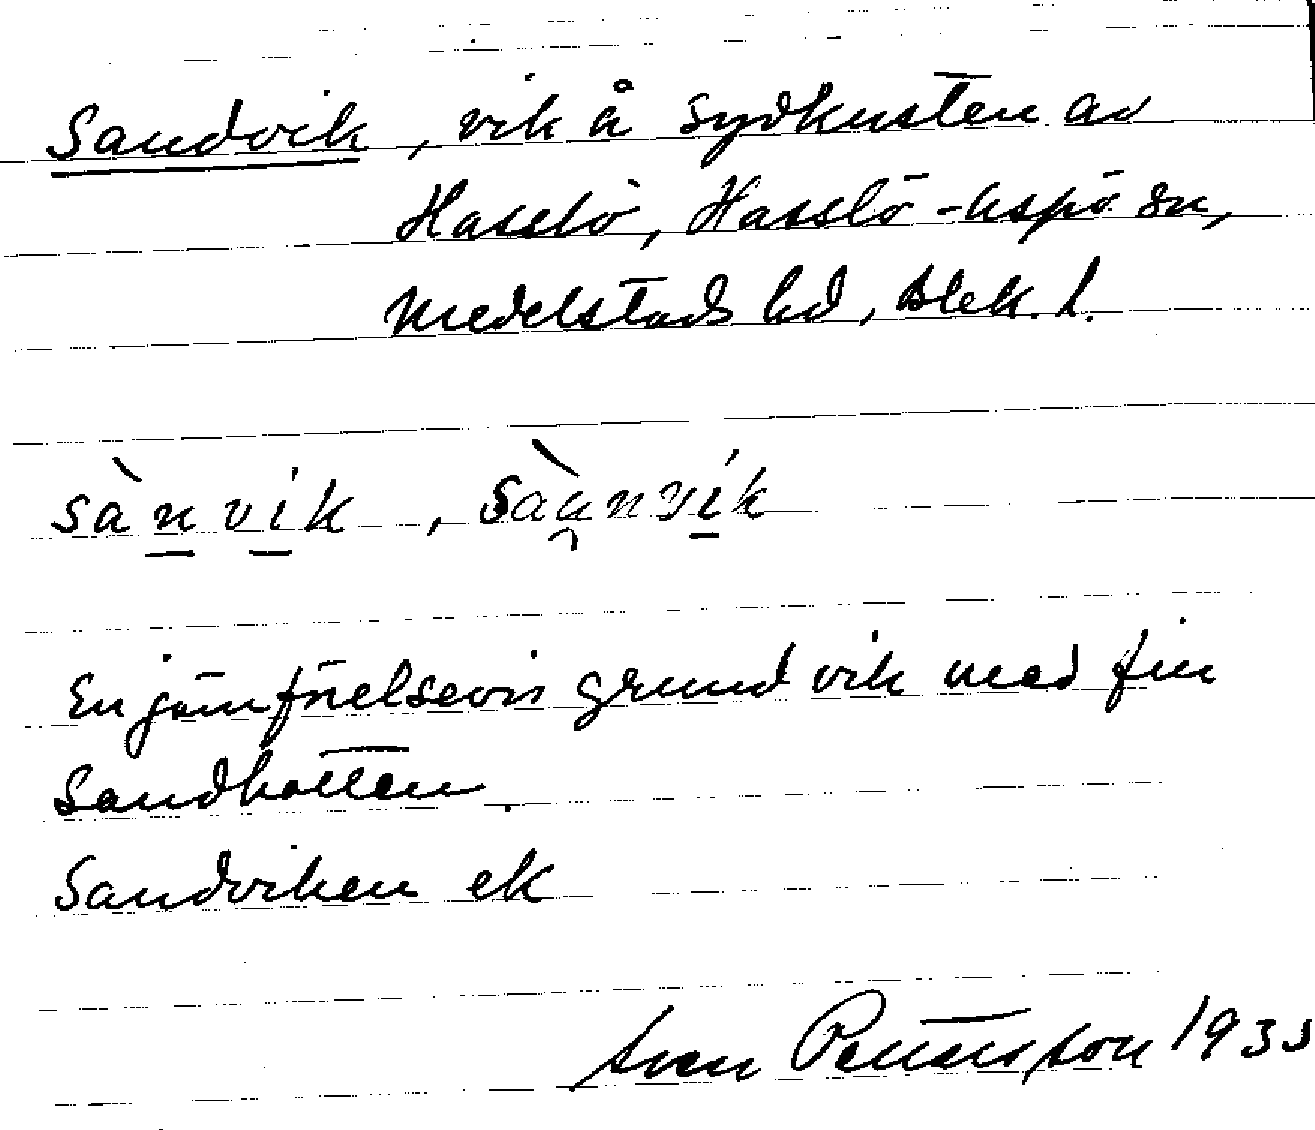 Sandvik, vik å sydkusten av
Hasslö, Hasslö-Aspö sn,
Medelstads hd, Blek. l.
sànvík, sàunvík
En jämförelsevis grund vik med fin
Sandbotten.
Sandviken ek
Sven Pettersson